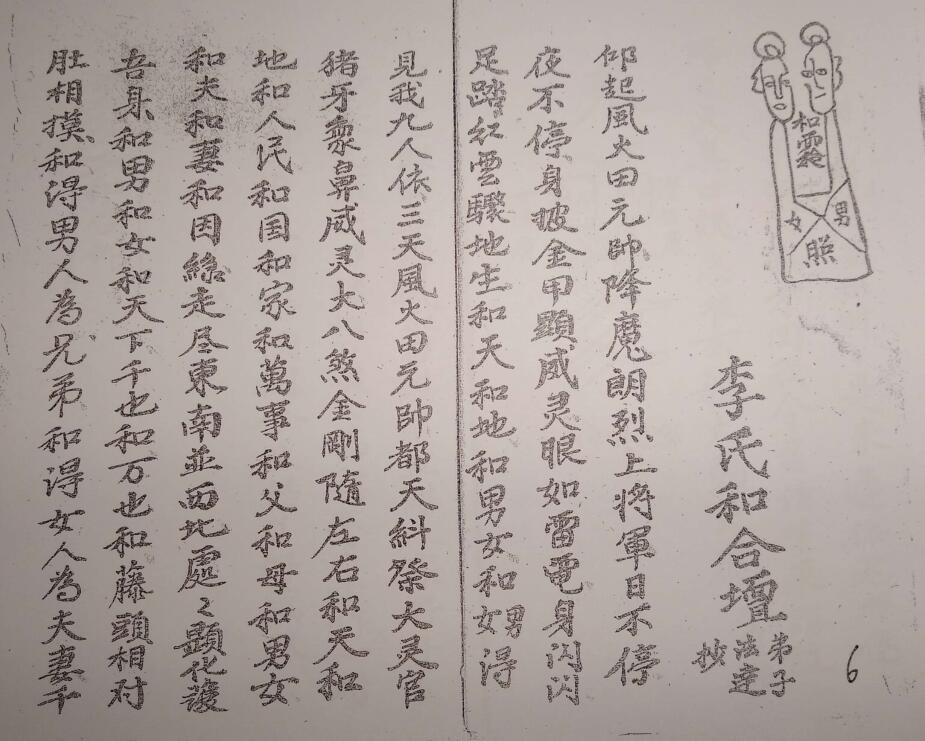 和靈
女
男
照
李氏和合壇
弟子
法定
抄
6
仰起風火田元帥降魔朗烈上將軍日不停
夜不停身披金甲顯威灵眼如雷電身闪闪
足踏红雲驟地生和天和地和男女和女男得
見我九人依三天風火田元帥都天糾祭大灵官
猪牙象鼻威灵大八煞金剛隨左右和天和
地和人民和国和家和萬事和父和母和男女
和夫和妻和因緣走尽東南並西北處々顕化護
吾身和男和女和天下千也和万也和藤頭相対
肚相摸和得男人為兄弟和得女人為夫妻千